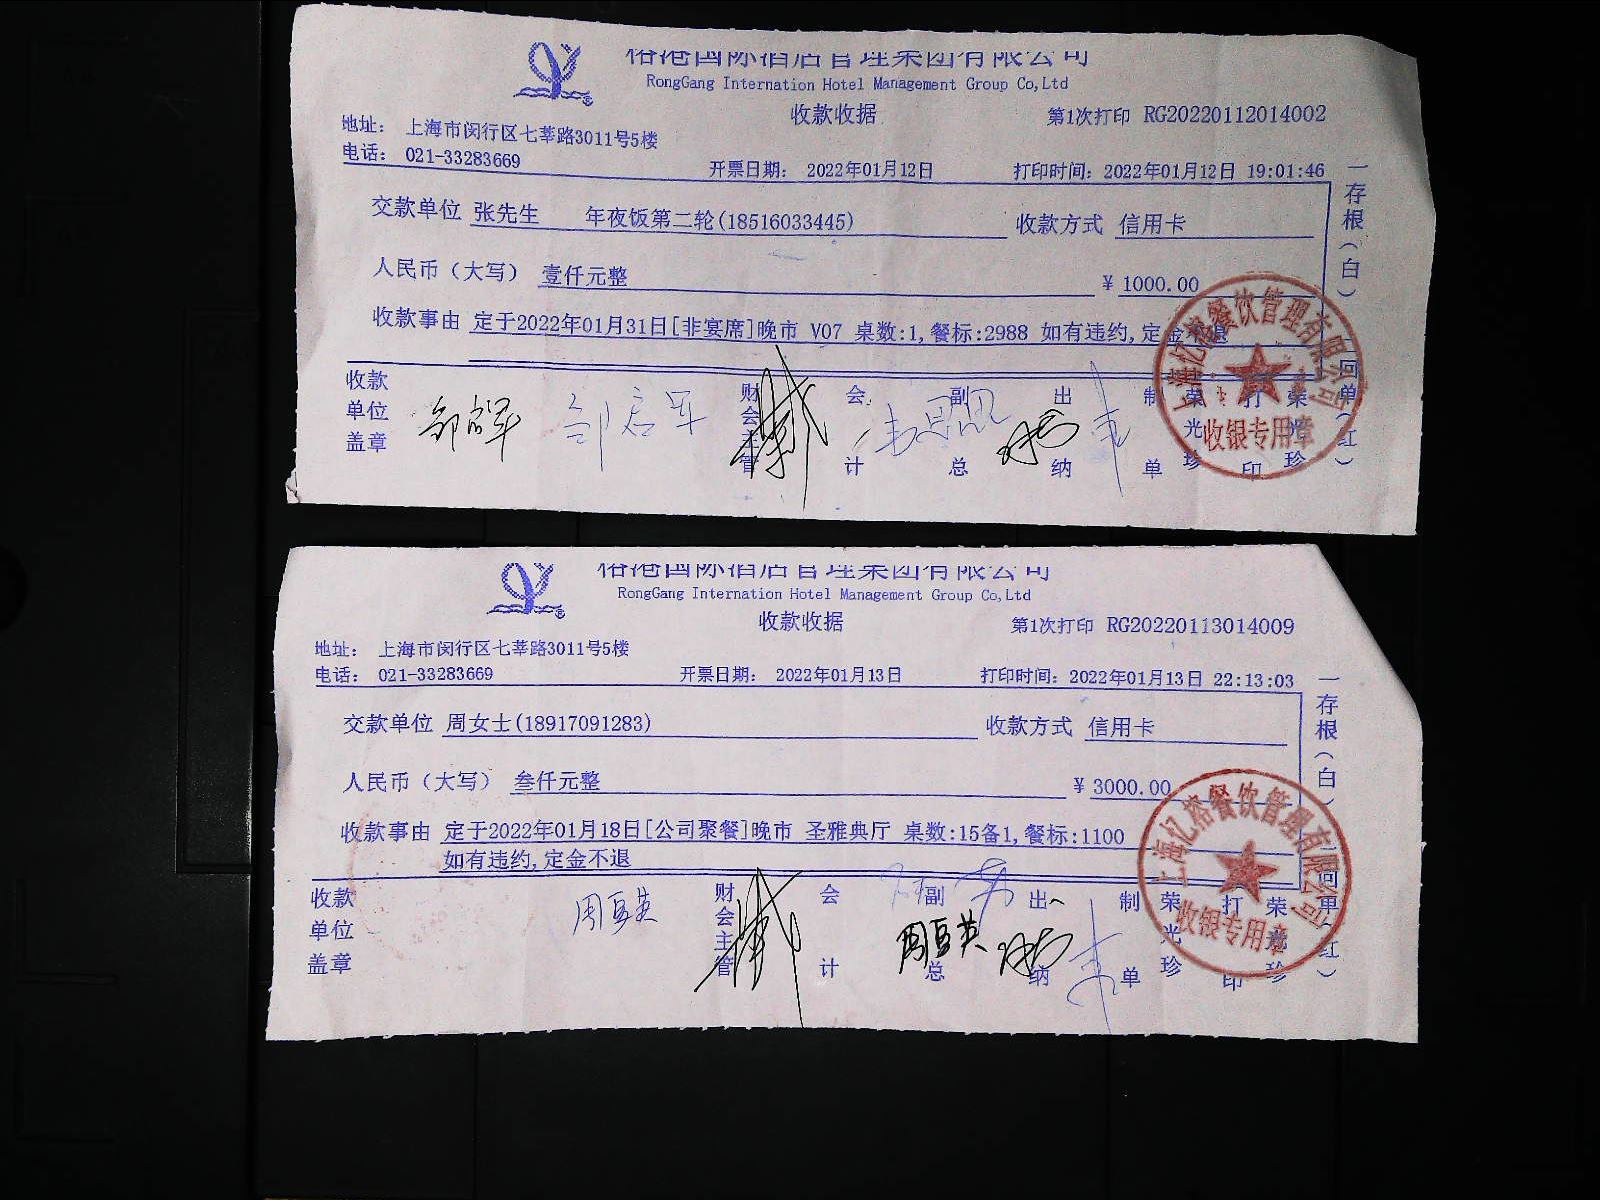 榕港国际酒店管理集团有限公司
RongGang Internation Hotel Management Group Co,Ltd
收款收据 第1次打印 RG20220112014002
地址： 上海市闵行区七莘路3011号5楼
电话： 021-33283669 开票日期： 2022年01月12日 打印时间：2022年01月12日 19:01:46
交款单位 张先生 年夜饭第二轮(18516033445) 收款方式 信用卡
人民币（大写） 壹仟元整 ￥ 1000.00
收款事由 定于2022年01月31日[非宴席]晚市 V07 桌数:1,餐标:2988 如有违约,定金不退
收款单位盖章 财会主管 会计 副总 出纳 制单 荣光珍 打印 荣光珍
一存根（白） 回单（红）
上海忆榕餐饮管理有限公司
收银专用章
榕港国际酒店管理集团有限公司
RongGang Internation Hotel Management Group Co,Ltd
收款收据 第1次打印 RG20220113014009
地址： 上海市闵行区七莘路3011号5楼
电话： 021-33283669 开票日期： 2022年01月13日 打印时间：2022年01月13日 22:13:03
交款单位 周女士(18917091283) 收款方式 信用卡
人民币（大写） 叁仟元整 ￥ 3000.00
收款事由 定于2022年01月18日[公司聚餐]晚市 圣雅典厅 桌数:15备1,餐标:1100
如有违约,定金不退
收款单位盖章 财会主管 会计 副总 出纳 制单 荣光珍 打印 荣光珍
一存根（白） 回单（红）
上海忆榕餐饮管理有限公司
收银专用章